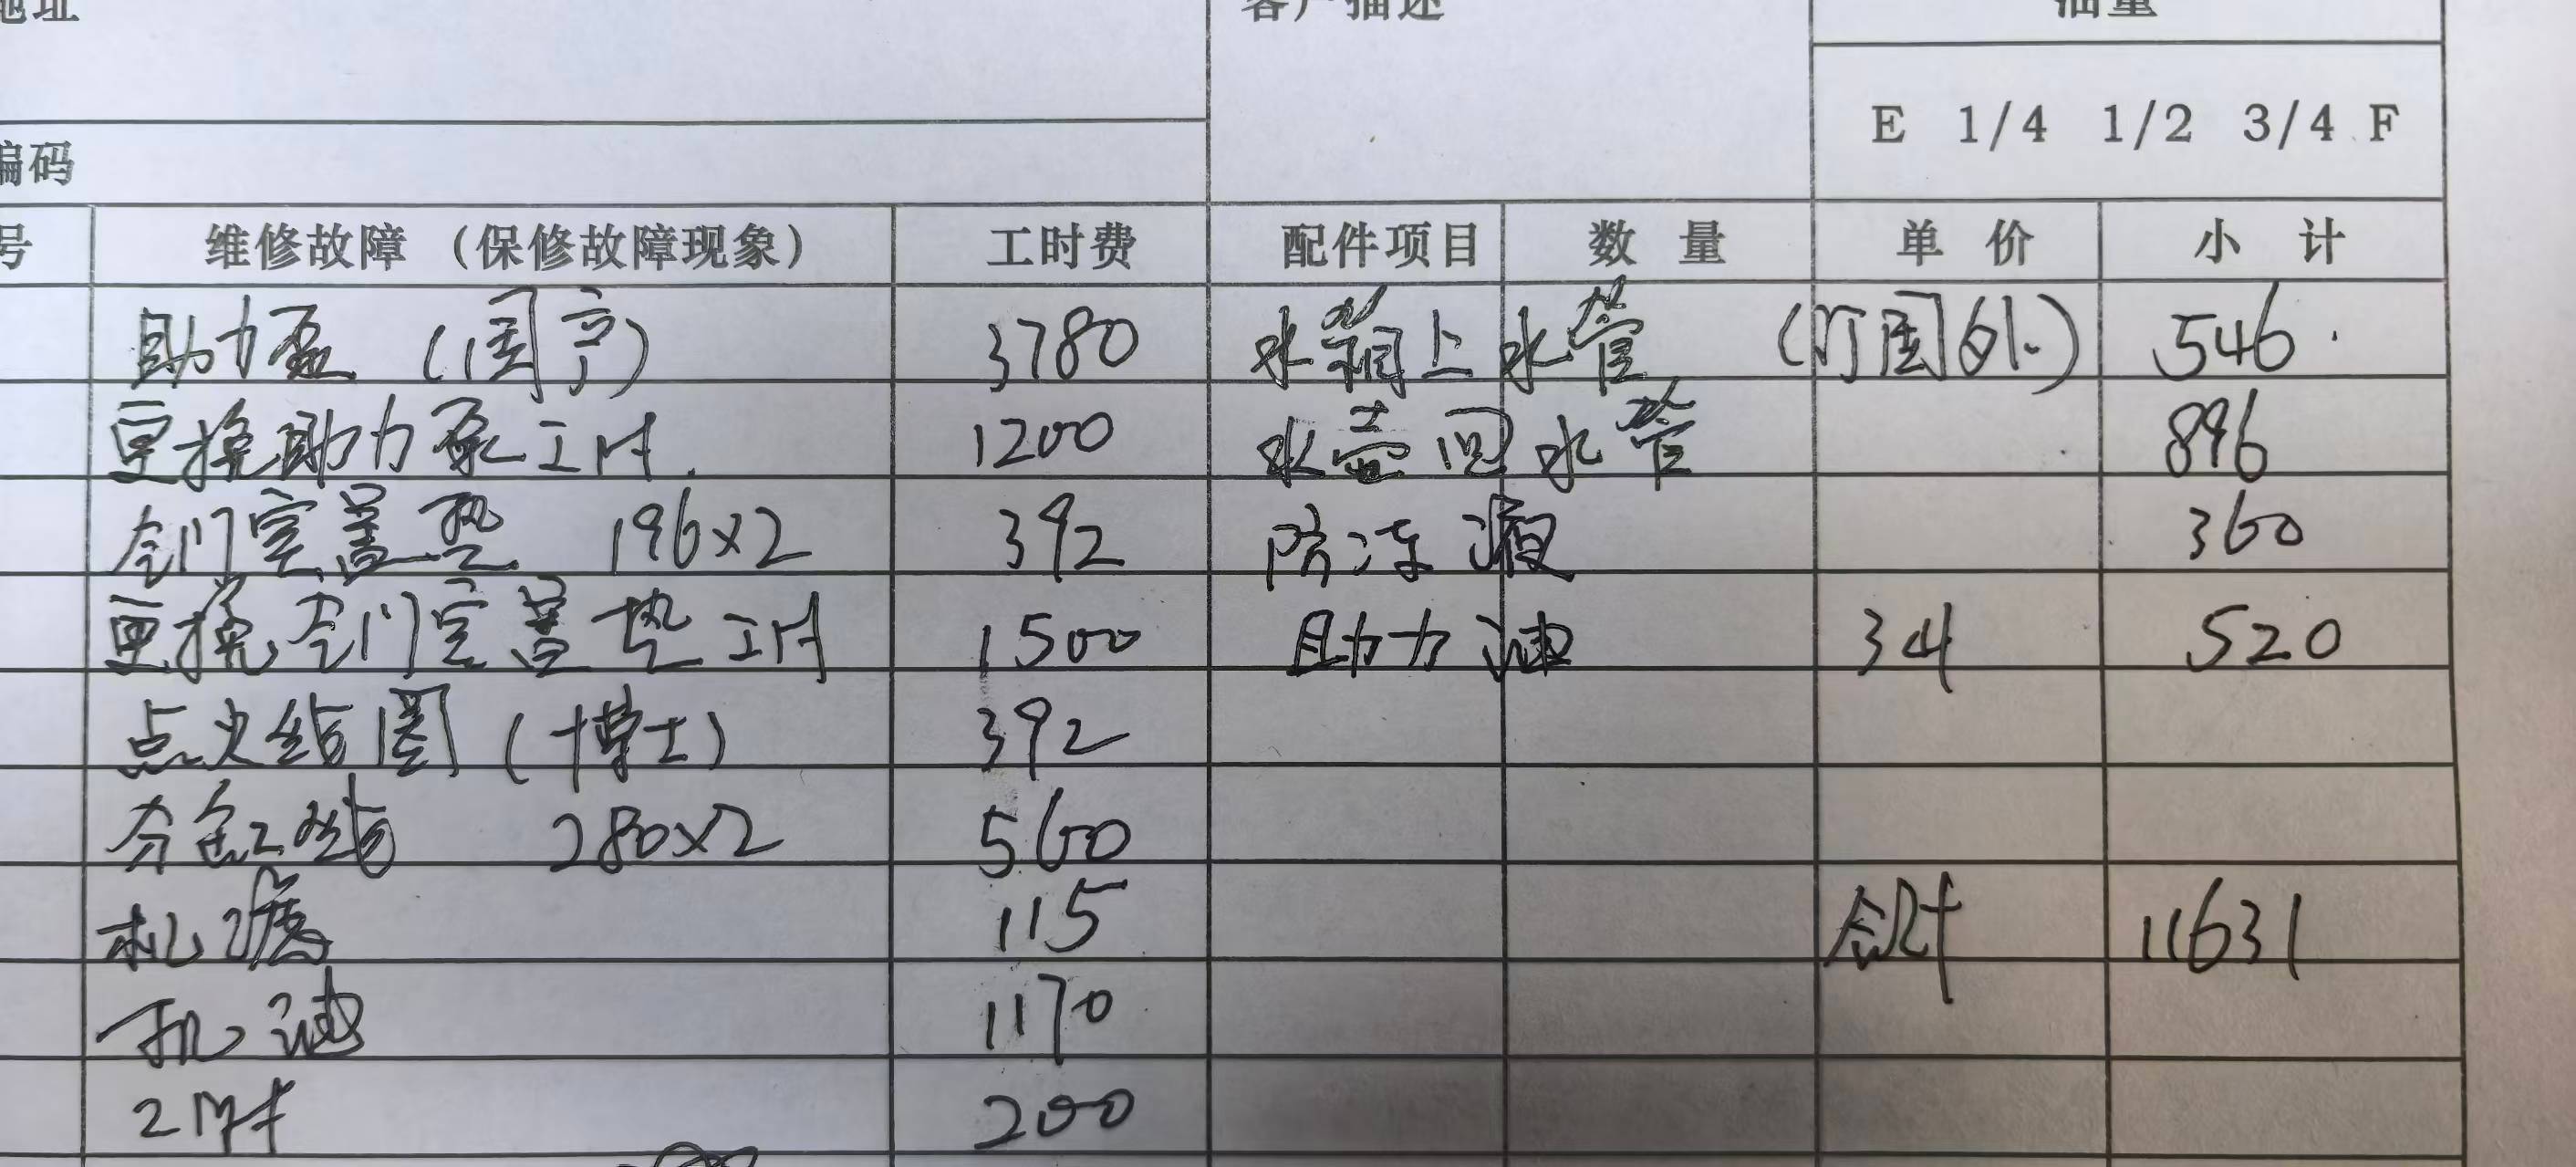 地址 客户描述 油量
E 1/4 1/2 3/4 F
编码
号 维修故障（保修故障现象） 工时费 配件项目 数量 单价 小计
助力泵（国产） 3780 水箱上水管（订国外） 546
更换助力泵工时. 1200 水壶回水管 896
气门室盖垫 196×2 392 防冻液 360
更换气门室盖垫工时 1500 助力油 34 520
点火线圈（博士） 392
分缸线 280×2 560
机滤 115 合计 11631
机油 1170
工时 200